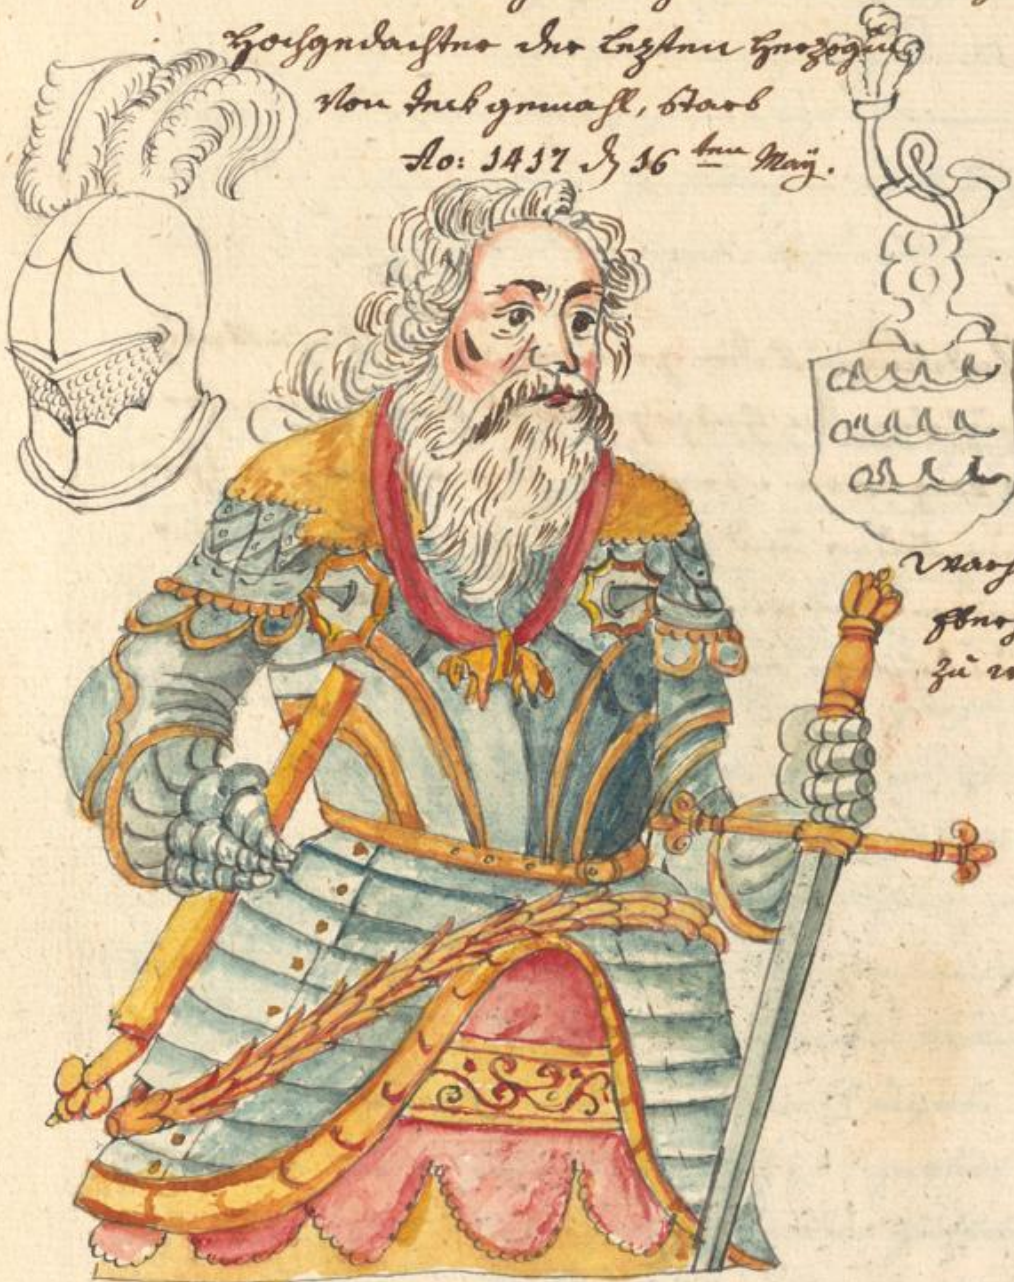 Hochgedachter der lezten Herzogin
von Teck gemahl, starb
Ao: 1417 den 16 ten Maÿ.
zu